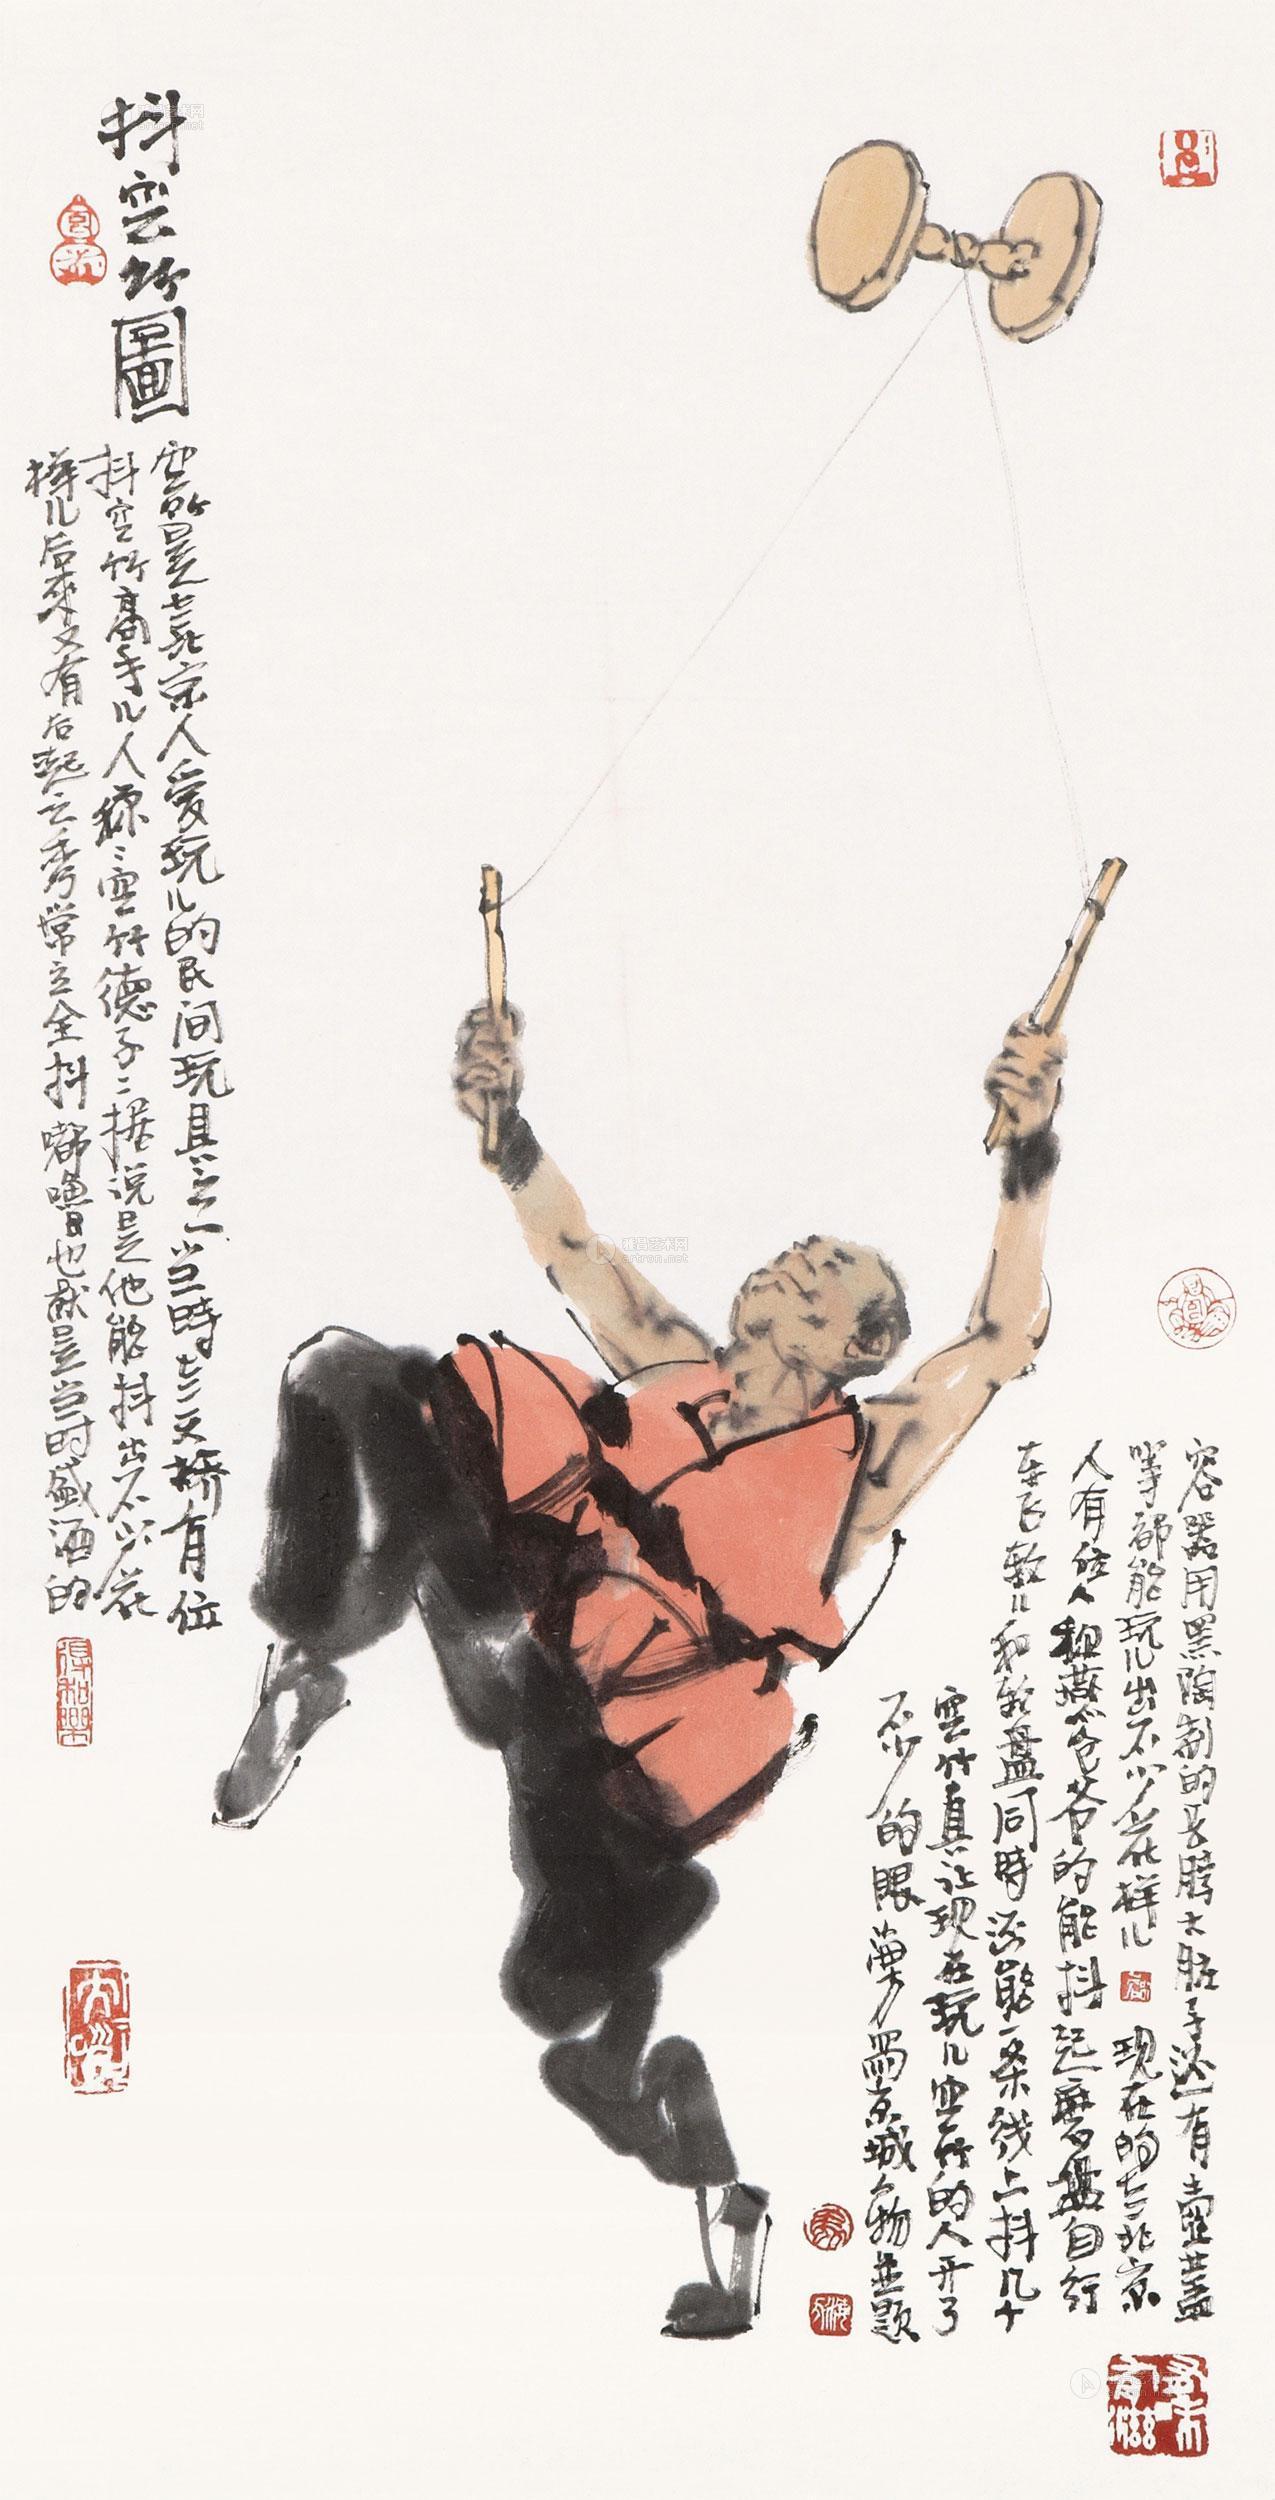 抖空竹圖
空竹是老北京人爱玩儿的民间玩具之一当時老天桥有位
抖空竹高手儿人称空竹德子据说是他能抖出不少花
样儿后来又有后起之秀常立全抖嘟噜也就是当时盛酒的
容器用黑陶制的長脖大肚子还有壶盖
等都能玩儿出不少花样儿 现在的老北京
人有位人称燕爷爷的能抖起磨盘自行
车飞轮儿和轮盘同時还能一条线上抖几十
空竹真让现在玩儿空竹的人开了
不少的眼 京城人物並题
雅昌艺术网
artron.net